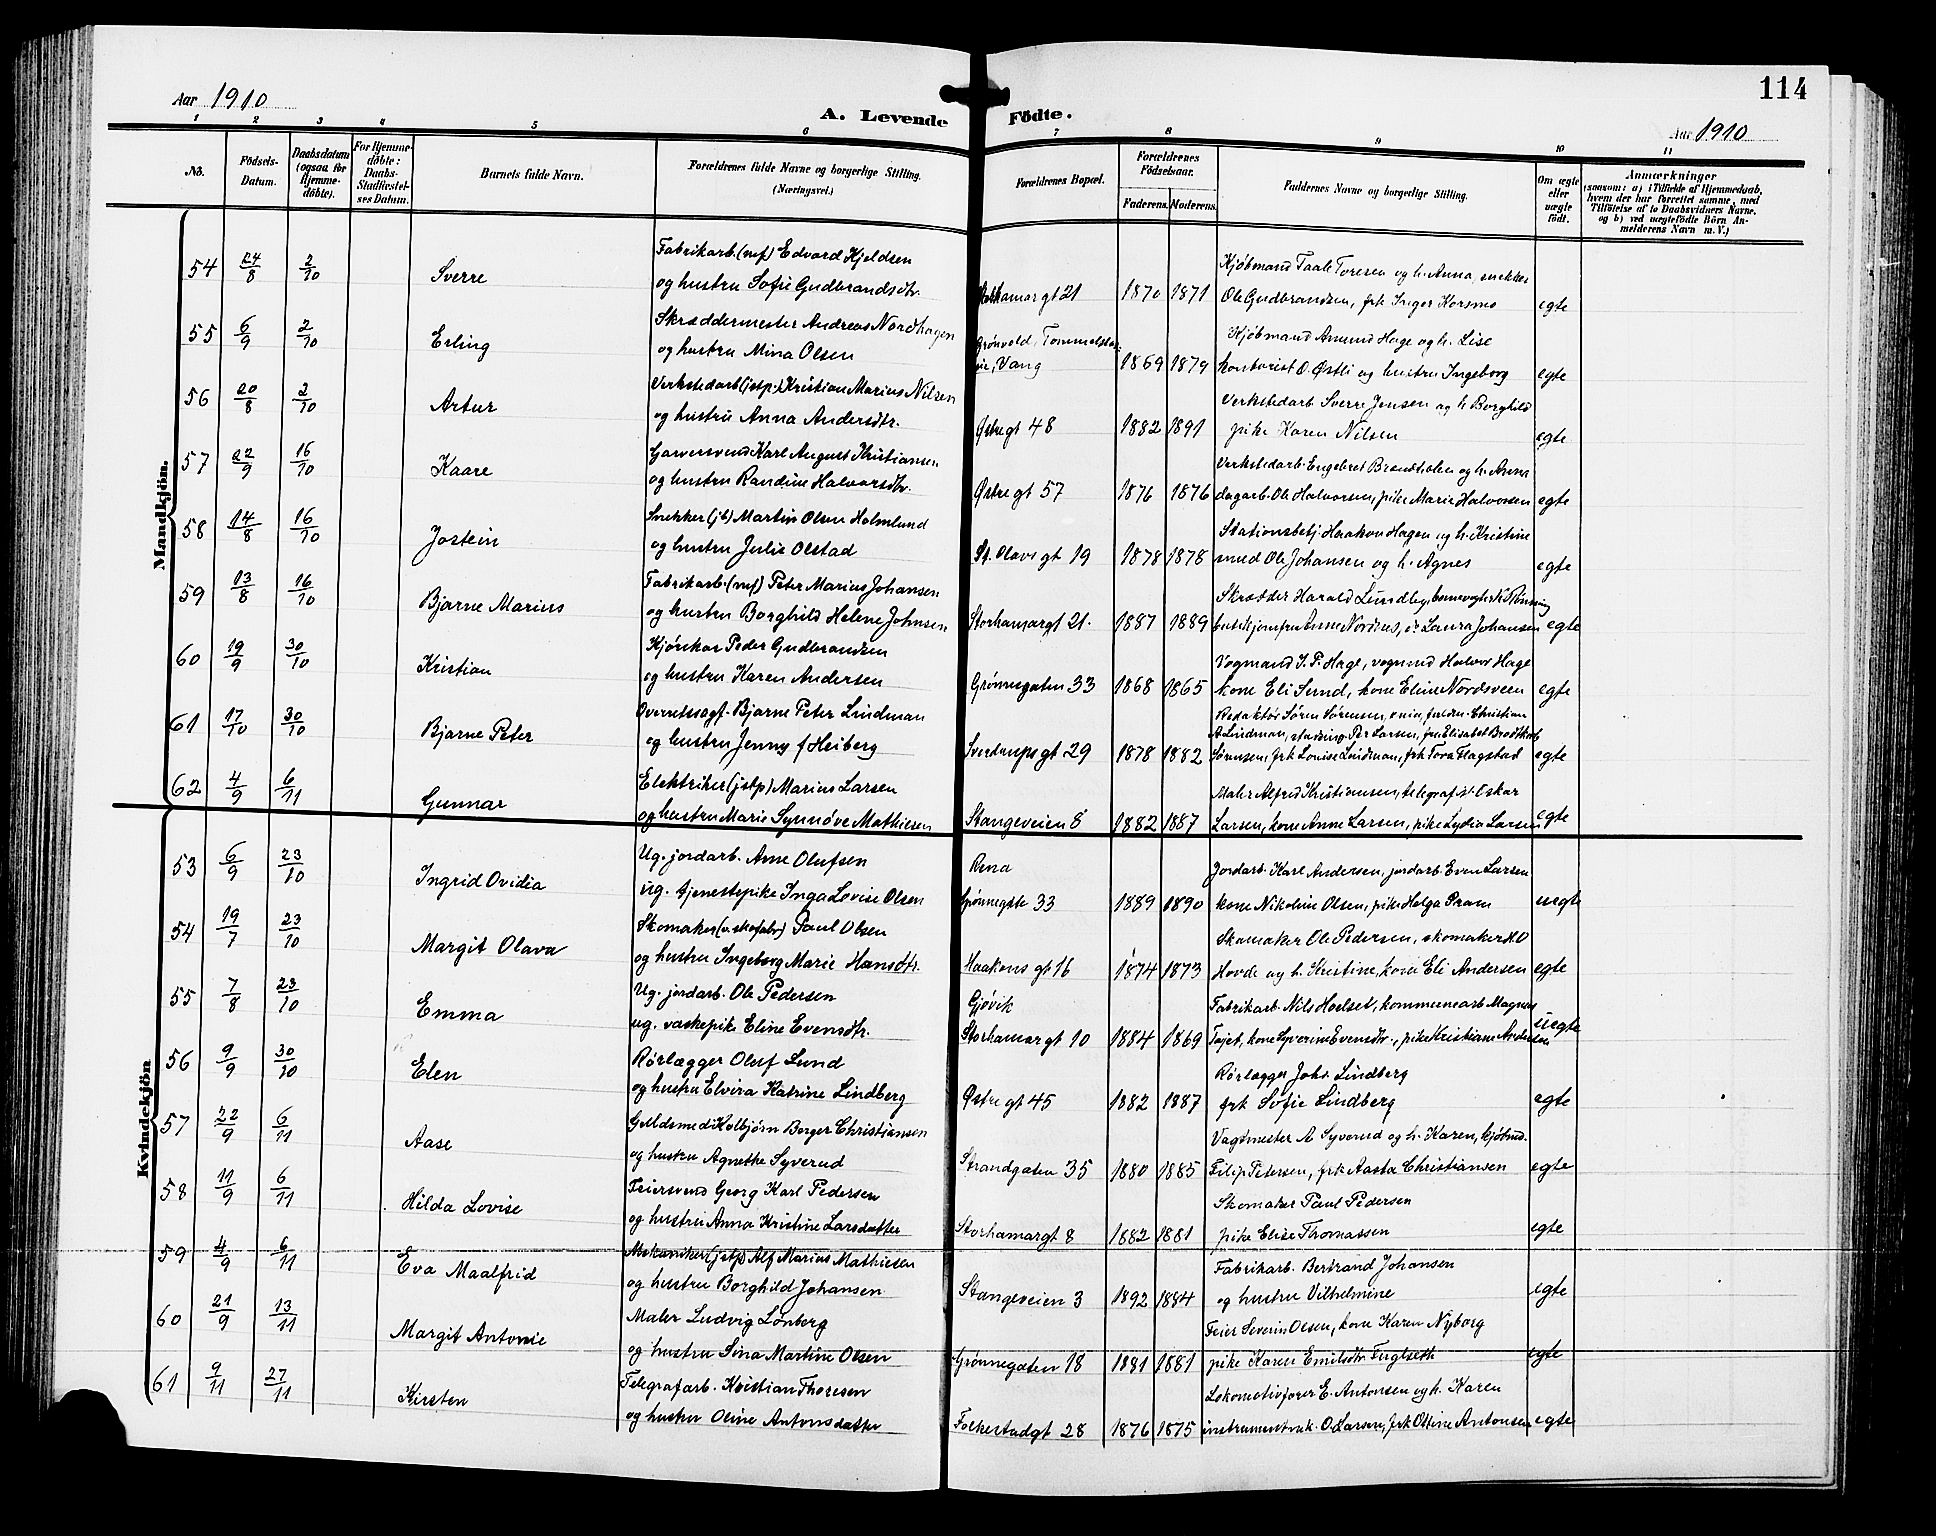 114
Aar 1910
A. Levende Födte.
Aar 1910
1 2 3 4 5 6 7 8 9 10 11
No. Födsels-Datum. Daabsdatum (ogsaa for Hjemme-döbte). For Hjemme-döbte: Daabs-Stadfæstel-ses Datum. Barnets fulde Navn. Forældrenes fulde Navne og borgerlige Stilling. (Næringsvei.) Forældrenes Bopæl. Forældrenes Födselsaar. Faderens. Moderens. Faddernes Navne og borgerlige Stilling. Om ægte eller uægte født. Anmærkninger (saasom: a) i Tilfælde af Hjemmedaab, hvem der har forrettet samme, med Tilföielse af to Daabsvidners Navne, og b) ved uægtefödte Börn An-melderens Navn m. V.)
Mandkjön.
54 24/8 2/10 Sverre Fabrikarb. (mf) Edvard Kjeldsen Kjöbmand Taale Toresen og h. Anna, snekker
og hustru Sofie Gudbrandsdtr. Storhamargt 21 1870 1871 Ole Gudbrandsen, frk Inger Korsmo egte
55 6/9 2/10 Erling Skræddermester Andreas Nordhagen Grønvold, Kjöbmand Amund Hage og h. Lise
og hustru Mina Olsen Vang 1869 1879 kontorist O. Østli og hustru Ingeborg egte
56 20/8 2/10 Artur Verkstedarb (jstp.) Kristian Marius Nilsen Verkstedarb Sverre Jensen og h. Borghild
og hustru Anna Andersdtr. Østregt 48 1882 1891 pike Karen Nilsen egte
57 22/9 16/10 Kaare Garversvend Karl August Kristiansen Verkstedarb. Engebret Brendholen og h. Anna
og hustru Randine Halvorsdtr. Østregt 57 1876 1876 dagarb. Ole Halvorsen, pike Marie Halvorsen egte
58 14/8 16/10 Jostein Snekker (jb) Martin Olsen Holmlund Stationsbetj. Haakon Hagen og h. Kristine
og hustru Julie Olstad St. Olavs gt 19 1878 1878 smed Ole Johansen og h. Agnes egte
59 13/8 16/10 Bjarne Marius Fabrikarb. (mf) Peter Marius Johansen Skrædder Harald Lundby,
og hustru Borghild Helene Johnsen Storhamargt 21. 1887 1889 Anne Nordhus, do Laura Johansen egte
60 19/9 30/10 Kristian Kjörekar Peder Gudbrandsen Vogmand J. P. Hage, vogmd Halvor Hage
og hustru Karen Andersen Grønnegaten 33 1868 1865 kone Eli Sund, kone Eline Nordsveen egte
61 17/10 30/10 Bjarne Peter Overretssagf. Bjarne Peter Lindman Redaktør Søren Sørensen, Christian
A Lindman, Per Larsen, fru Elisabet Brodtkorb
og hustru Jenny f Heiberg Sverdrups gt 29 1878 1882 Sørensen, frk Louise Lindman, frk Tora Flagstad egte
62 4/9 6/11 Gunnar Elektriker (jstp) Marius Larsen Maler Alfred Kristiansen, telegrafist Oskar
og hustru Marie Synnøve Mathiesen Stangeveien 8 1882 1887 Larsen, kone Anne Larsen, pike Lydia Larsen egte
Kvindekjön
53 6/9 23/10 Ingrid Ovidia Ug. jordarb. Arne Olufsen Rena Jordarb. Karl Andersen, jordarb Even Larsen
ug. tjenestepike Inga Lovise Olsen Grønnegate 33 1889 1890 kone Nikoline Olsen, pike Helga Pram uegte
54 19/7 23/10 Margit Olava Skomaker (v. skofabr) Paul Olsen Skomaker Ole Pedersen, skomaker M.O
og hustru Ingeborg Marie Hansdtr. Haakons gt 16 1874 1873 Hovde og h. Kristine, kone Eli Andersen egte
55 7/8 23/10 Emma Ug. jordarb. Ole Pedersen Gjøvik Fabrikarb. Nils Hoelset, kommunearb Magnus
ug. vaskepik. Eline Evensdtr. Storhamargt 10 1884 1869 Tajet, kone Syverine Evensdtr., pike Kristiane Andersen uegte
56 9/9 30/10 Elen Rørlægger Oluf Lund Rörlægger Johs. Lindberg
og hustru Elvira Katrine Lindberg Østre gt 45 1882 1887 frk Sofie Lindberg egte
57 22/9 6/11 Aase Guldsmed Kolbjörn Borger Christiansen Vagtmester A Syverud og h. Karen, kjøbmd.
og hustru Agnethe Syverud Strandgaten 35 1880 1885 Filip Petersen, frk Aasta Christiansen egte
58 11/9 6/11 Hilda Lovise Feiersvend Georg Karl Pedersen Skomaker Paul Pedersen
og hustru Anna Kristine Larsdatter Storhamargt 8 1882 1881 pike Elise Thomassen egte
59 4/9 6/11 Eva Maalfrid Mekaniker (jstp) Alf Marius Mathiesen Fabrikarb. Bertrand Johansen
og hustru Borghild Johansen Stangeveien 3 1892 1884 og hustru Vilhelmine egte
60 21/9 13/11 Margit Antonie Maler Ludvig Lönberg Feier Severin Olsen, kone Karen Nyborg
og hustru Sina Martine Olsen Grönnegaten 18 1881 1881 pike Karen Emilsdtr Fuglseth egte
61 9/11 27/11 Kirsten Telegrafarb. Kristian Thoresen Lokomotivfører E. Antonsen og h. Karen
og hustru Oline Antonsdatter Folkestadgt 28 1876 1875 instrumentmak. O Larsen, frk Ottine Antonsen egte